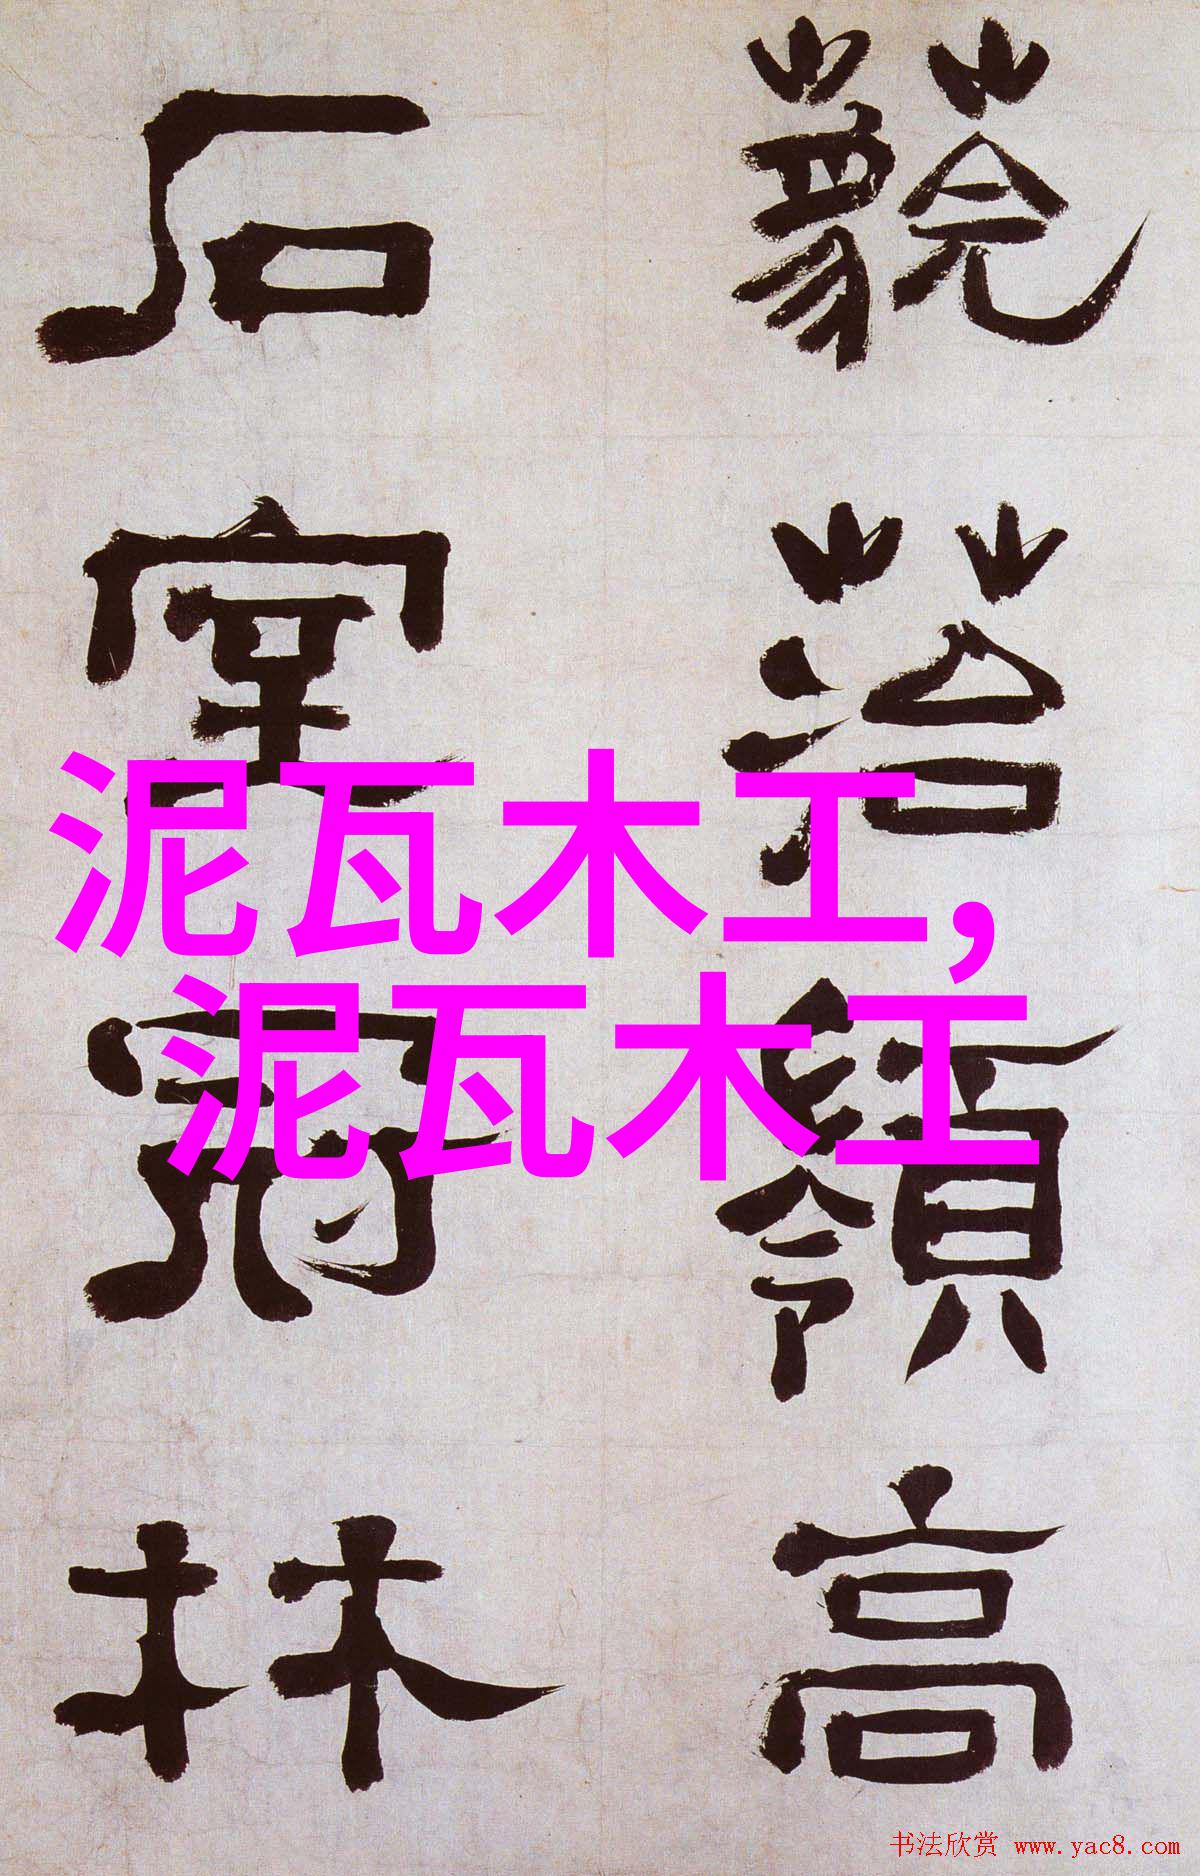 落嶺高
石室冠林
泥瓦木工,
泥瓦木工
书法欣赏 www.yac8.com